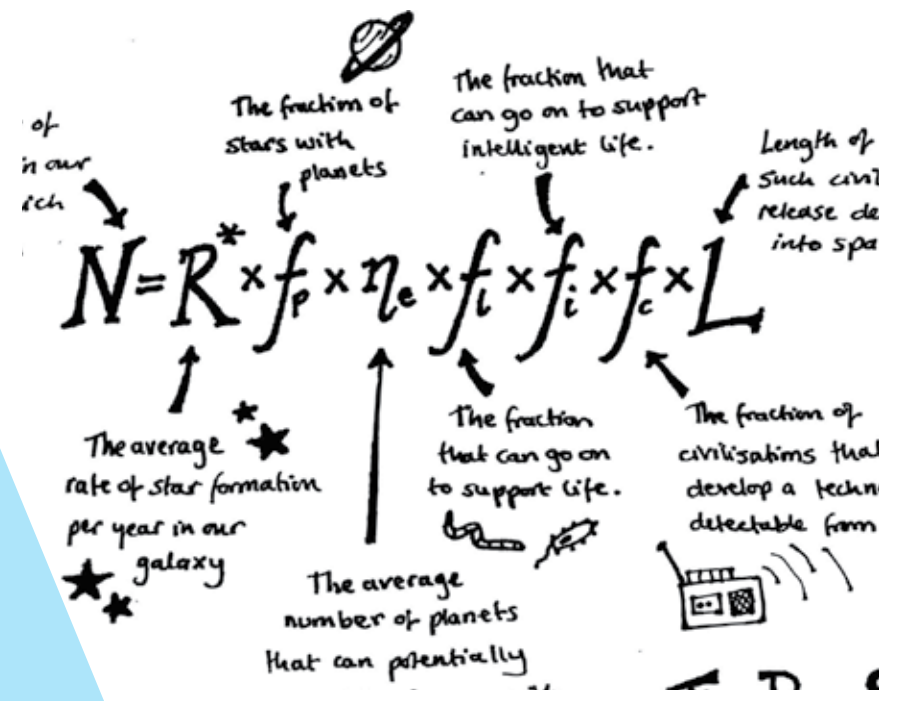 of
in our
ich
The fraction of
stars with
planets
The fraction that
can go on to support
intelligent life.
Length of
such civil
release de
into spa
N = R* × fp × ηe × fl × fi × fc × L
The average
rate of star formation
per year in our
galaxy
The average
number of planets
that can potentially
The fraction
that can go on
to support life.
The fraction of
civilisations that
develop a techn
detectable from